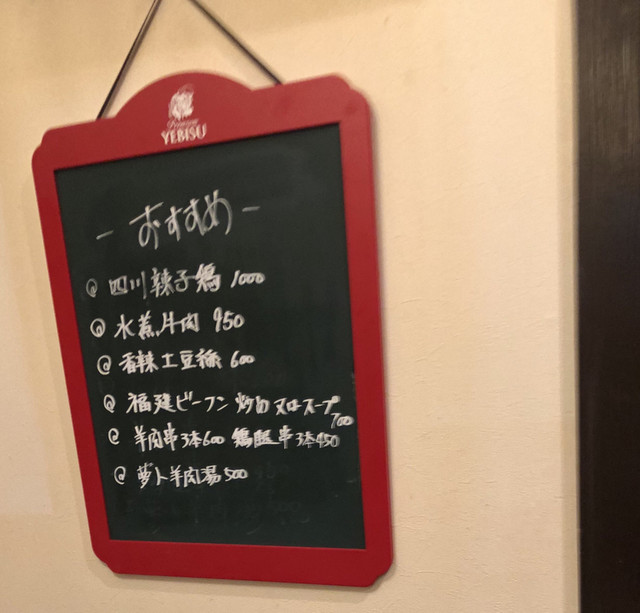 Premium
YEBISU
- おすすめ -
@ 四川辣子鶏 1000
@ 水煮片肉 950
@ 香辣土豆絲 600
@ 福建ビーフン 炒め又はスープ
700
@ 羊肉串3本600 鶏腿串3本450
@ 萝卜羊肉湯500